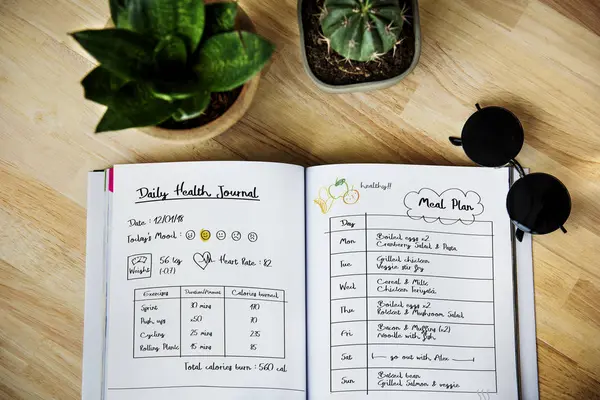 Daily Health Journal
Date : 12/01/18
Today's Mood :
Weight
56 kg
(-0.7)
Heart Rate : 82
Exercise Duration/Amount Calories burned
Sprint 30 mins
Push ups x50 70
Cycling 25 mins 235
Rolling Plank 15 mins
Total calories burn : 560 cal
healthy!!
Meal Plan
Day
Mon Boiled eggs x2
Cranberry Salad & Pasta
Tue Grilled chicken
Veggie stir fry
Wed Cereal & Milk
Chicken Teriyaki
Thu Boiled eggs x2
& Mushroom Salad
Fri Bacon & Muffins (x2)
Noodle with fish
Sat go out with Alex
Sun Baked bean
Grilled Salmon & veggie